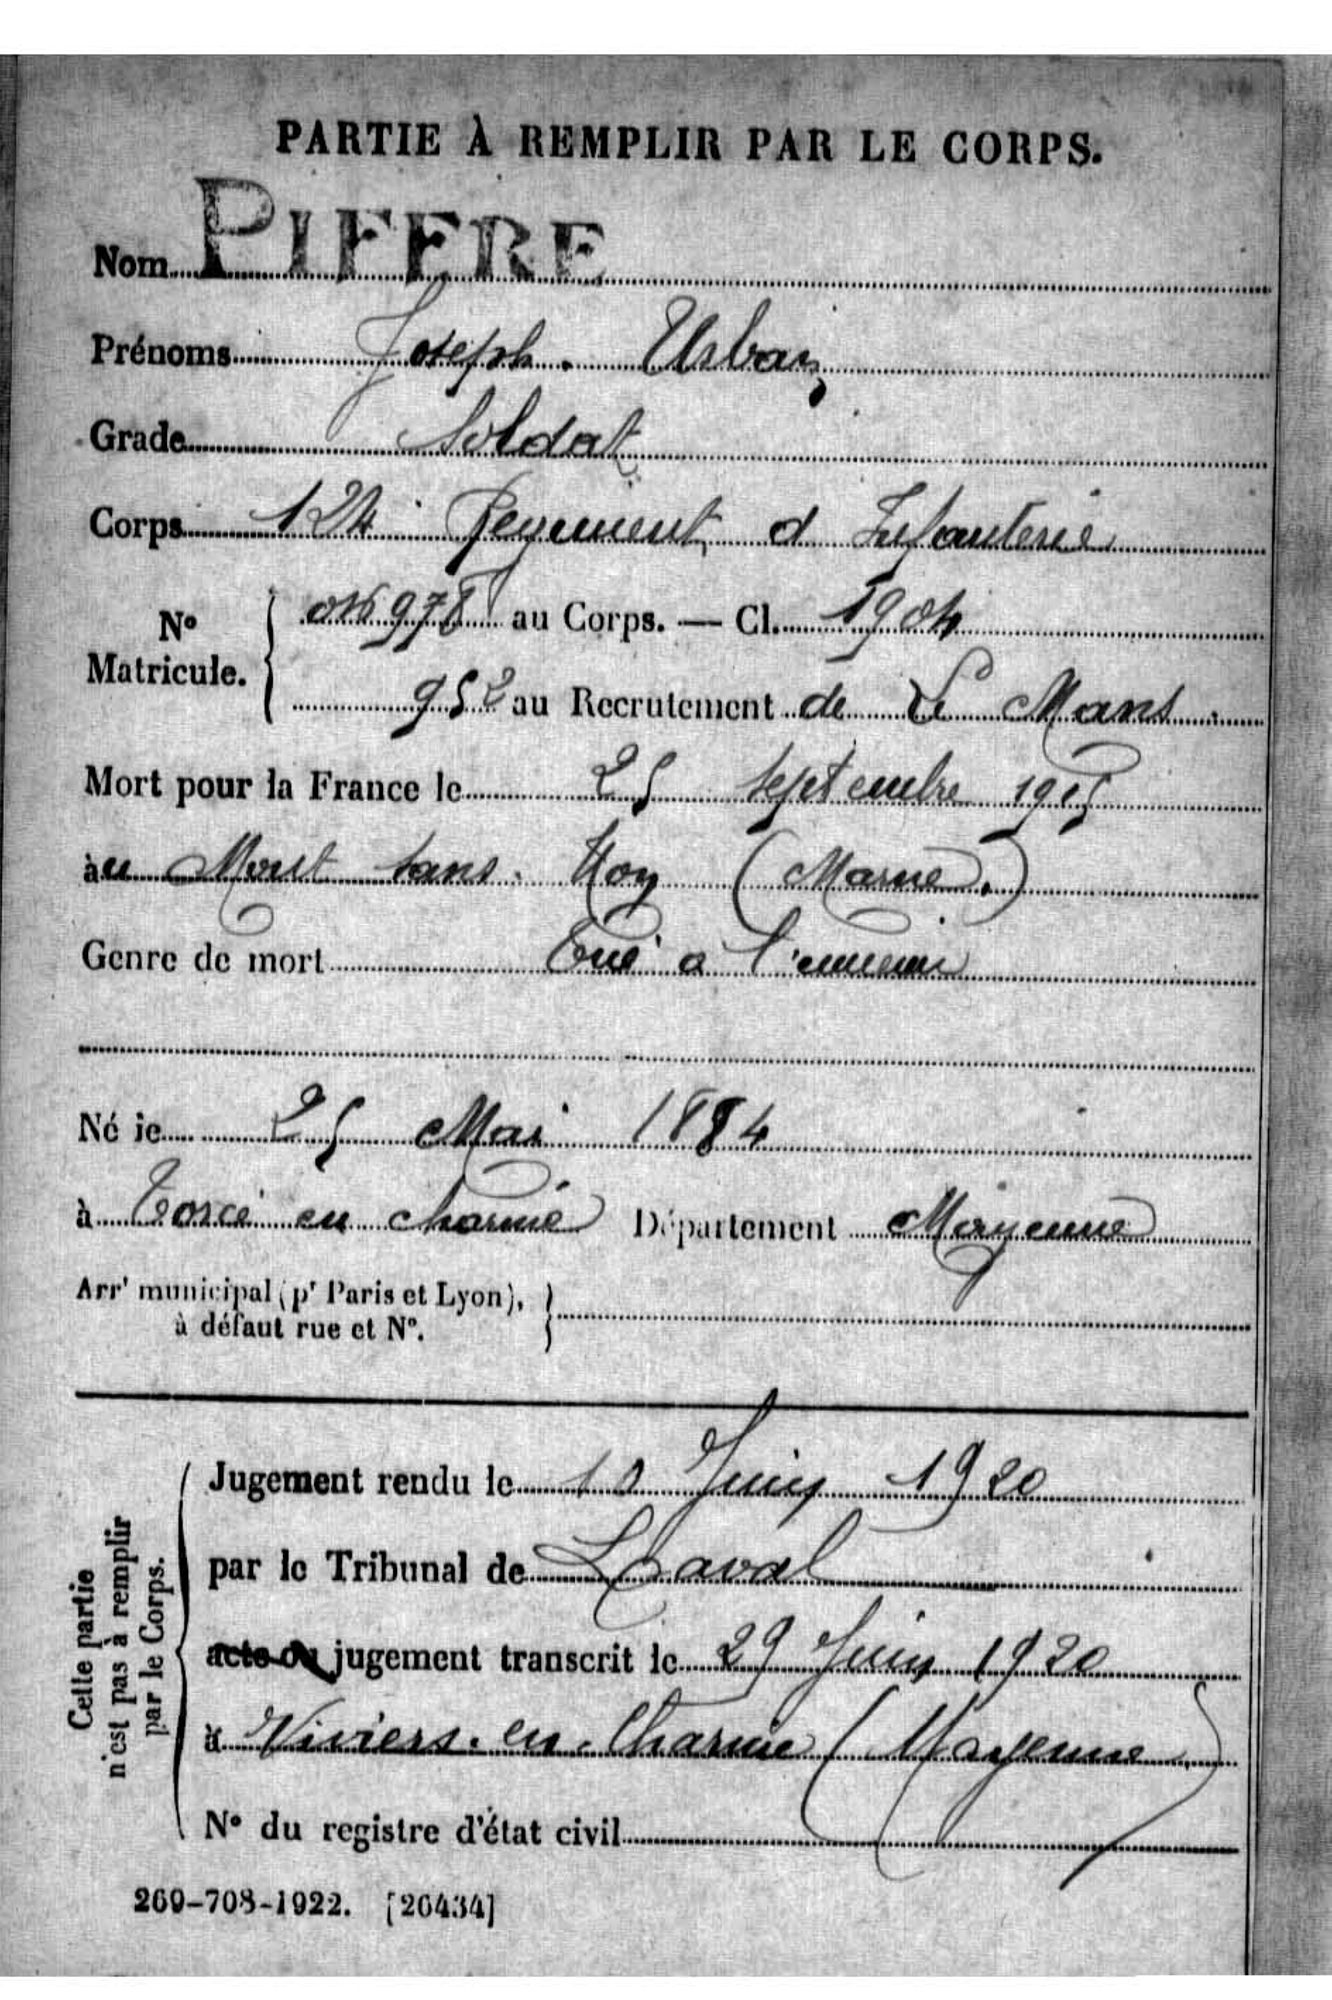 PARTIE À REMPLIR PAR LE CORPS.
Nom PIFFRE
Prénoms Joseph. Urbain
Grade Soldat
Corps 124 Regiment d Infanterie
N° Matricule. { 016978 au Corps. — Cl. 1904
952 au Recrutement de Le Mans.
Mort pour la France le 25 septembre 1915
au Mont sans. Noy (Marne.)
Genre de mort tué a l'ennemi
Né le 25 Mai 1884
à Torcé en charnié Département Mayenne
Arrt municipal (pr Paris et Lyon),
à défaut rue et N°. }
Cette partie
n'est pas à remplir
par le Corps.
Jugement rendu le 10 Juin 1920
par le Tribunal de Laval
acte ou jugement transcrit le 29 Juin 1920
à Viviers. en. Charnie (Mayenne)
N° du registre d'état civil
269-708-1922. [26434]